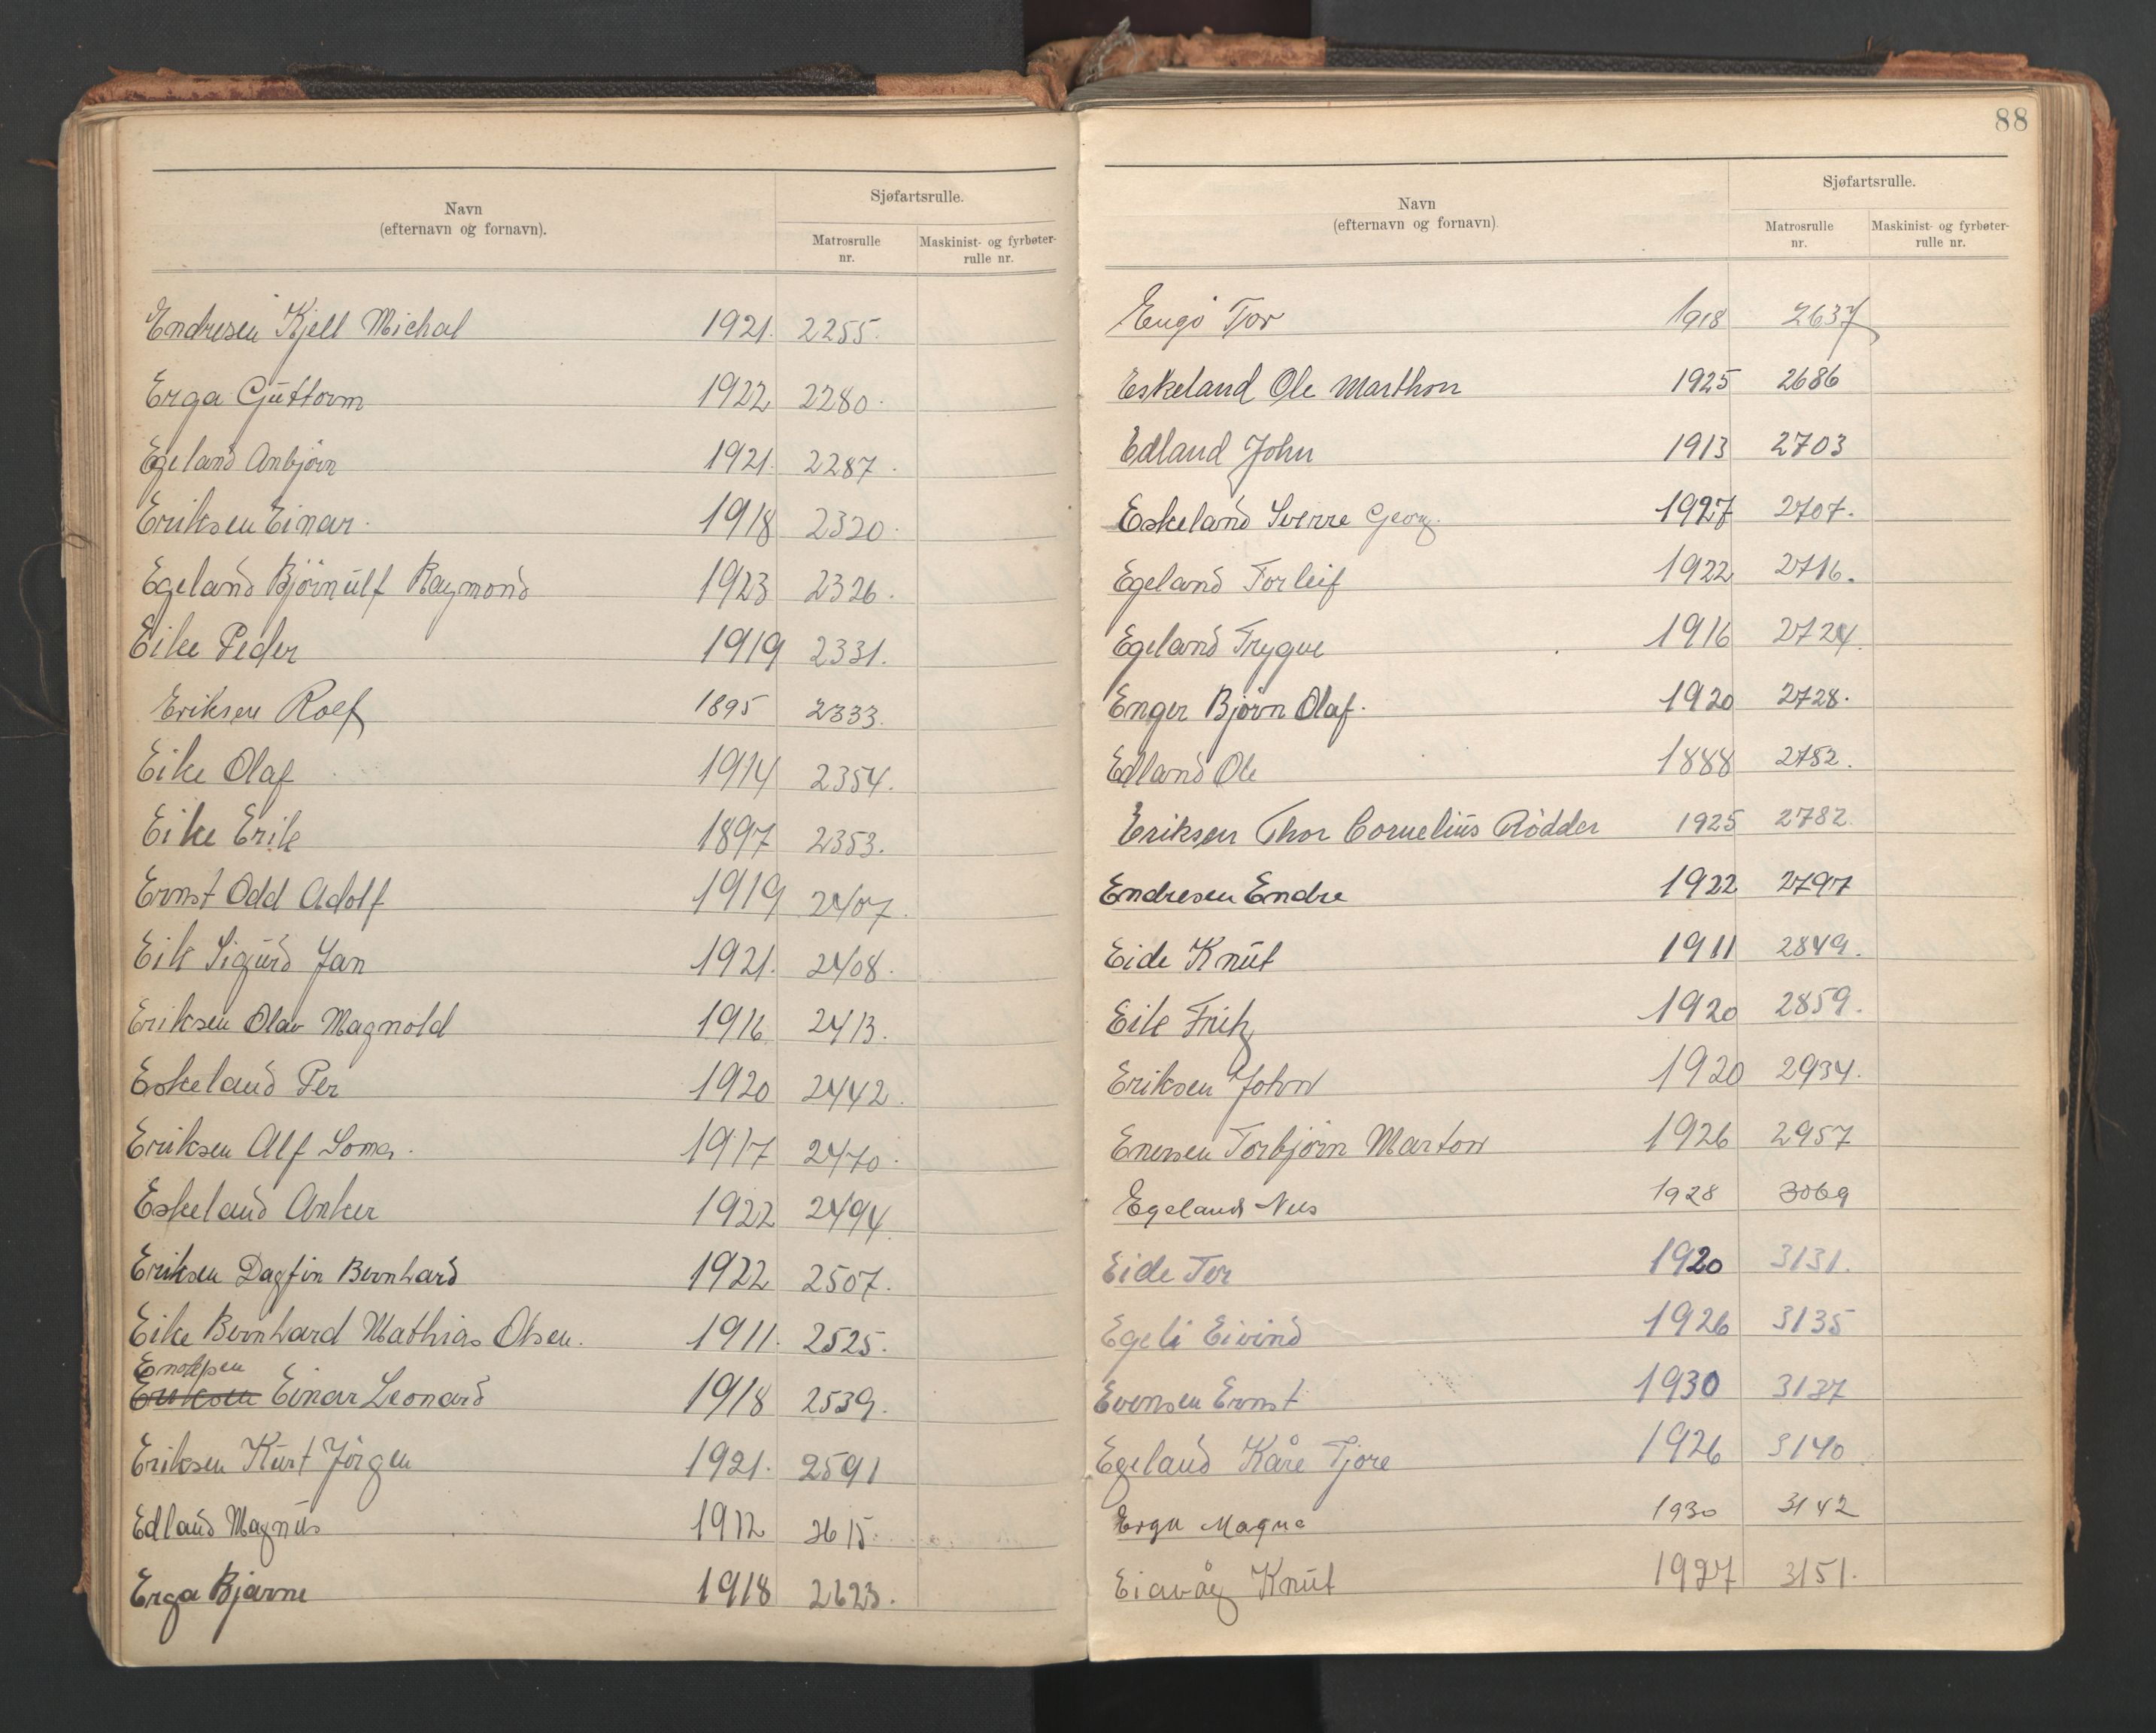 Navn
(efternavn og fornavn).
Sjøfartsrulle.
Matrosrulle
nr.
Maskinist- og fyrbøter-
rulle nr.
Endresen Kjell Michal 1921. 2255.
Erga Guttorm 1922 2280.
Egeland Anbjörn 1921. 2287.
Eriksen Einar. 1918 2320.
Egeland Björnulf Raymond 1923 2326.
Eike Peder 1919 2331.
Eriksen Rolf 1895 2333.
Eike Olaf 1914 2354.
Eike Erik 1897 2353.
Ernst Odd Adolf 1919 2407.
Eik Sigurd Jan 1921. 2408.
Eriksen Olav Magnold 1916 2413.
Eskeland Per 1920 2442.
Eriksen Alf Soma. 1917 2470.
Eskeland Anker 1922 2494
Eriksen Dagfin Bernhard 1922 2507.
Eike Bernhard Mathias Olsen. 1911. 2525.
Enoksen
Eriksen Einar Leonard 1918 2539.
Eriksen Kurt Jörgen 1921. 2591
Edland Magnus 1912 2615.
Erga Bjarne 1918 2623.
88
Navn
(efternavn og fornavn)
Sjøfartsrulle.
Matrosrulle
nr.
Maskinist- og fyrbøter-
rulle nr.
Engö Tor 1918 2637
Eskeland Ole Marthon 1925 2686
Edland John 1913 2703
Eskeland Sverre Georg. 1927 2707.
Egeland Torleif 1922 2716.
Egeland Trygve 1916 2724.
Enger Björn Olaf. 1920 2728.
Edland Ole 1888 2752.
Eriksen Thor Cornelius Rödder 1925 2782.
Endresen Endre 1922 2797
Eide Knut 1911 2849.
Eik Fritz 1920 2859.
Eriksen John 1920 2934.
Enersen Torbjörn Marton 1926 2957
Egeland Nils 1928 3069
Eide Tor 1920 3131.
Egeli Eivind 1926 3135
Evensen Ernst 1930 3137
Egeland Kåre Tjore 1926 3140.
Erga Magne 1930 3142
Eiavåg Knut 1927 3151.